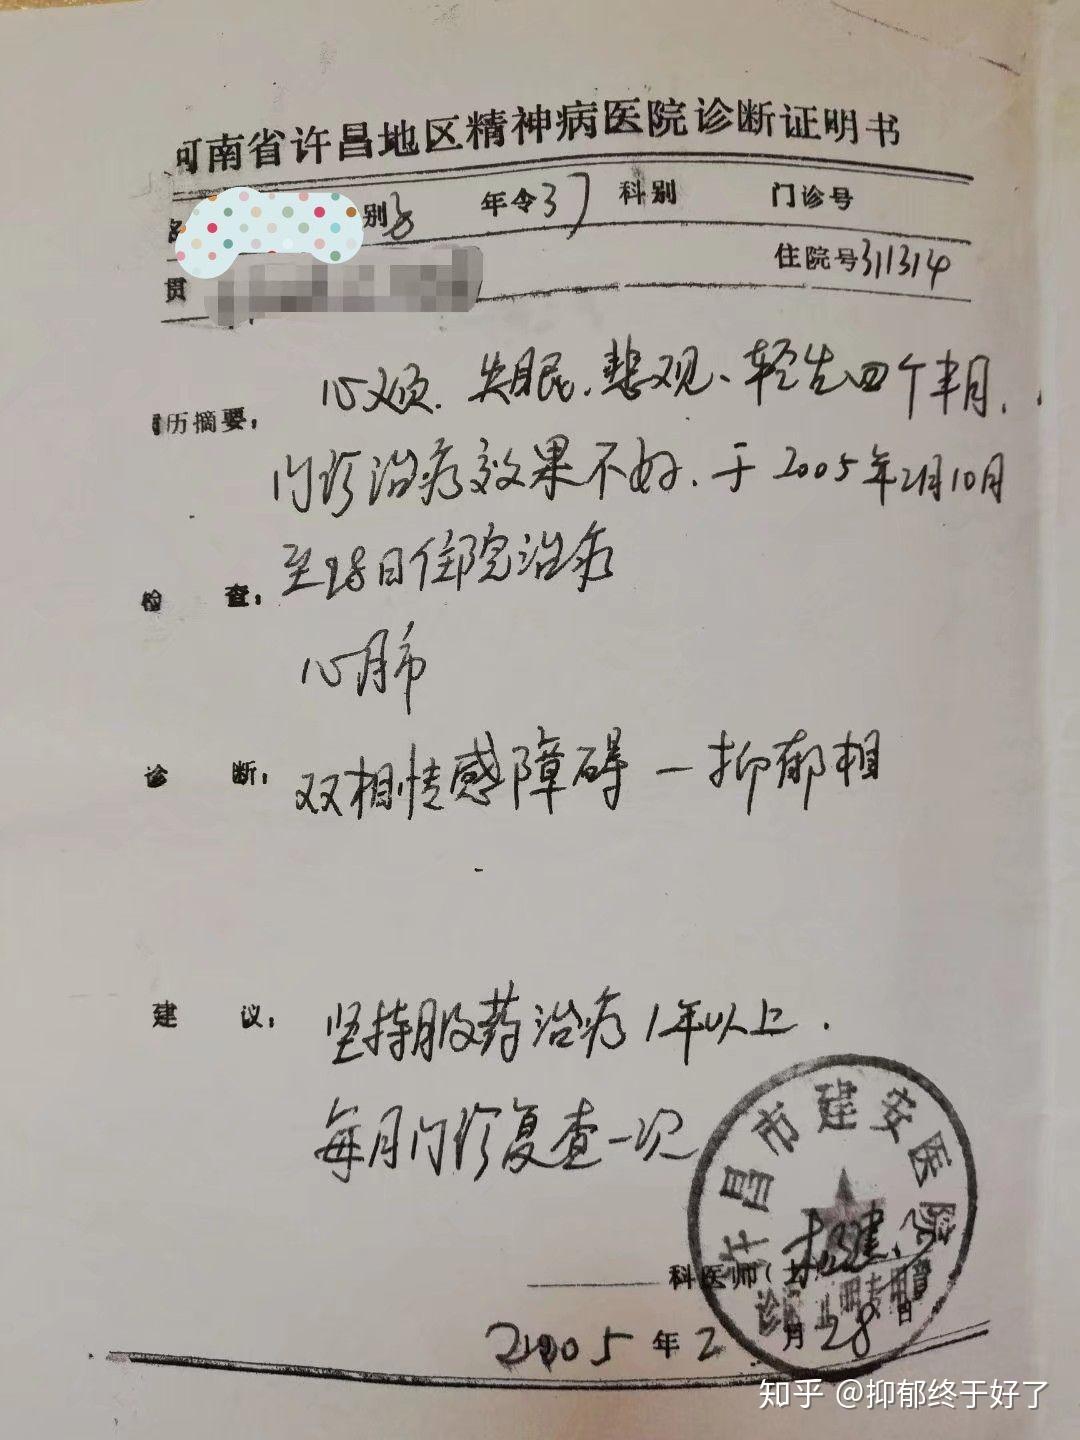 河南省许昌地区精神病医院诊断证明书
名 别 年令37 科别 门诊号
贯 住院号311314
心烦、失眠、悲观、轻生四个半月、
历摘要:
门诊治疗效果不好、于2005年2月10日
至28日住院治疗
检 查:
心肺
诊 断: 双相情感障碍—抑郁相
建 议: 坚持服药治疗1年以上.
每月门诊复查一次
许昌市建安医院
科医师(
诊断证明专用章
2005年2月28日
知乎 @抑郁终于好了